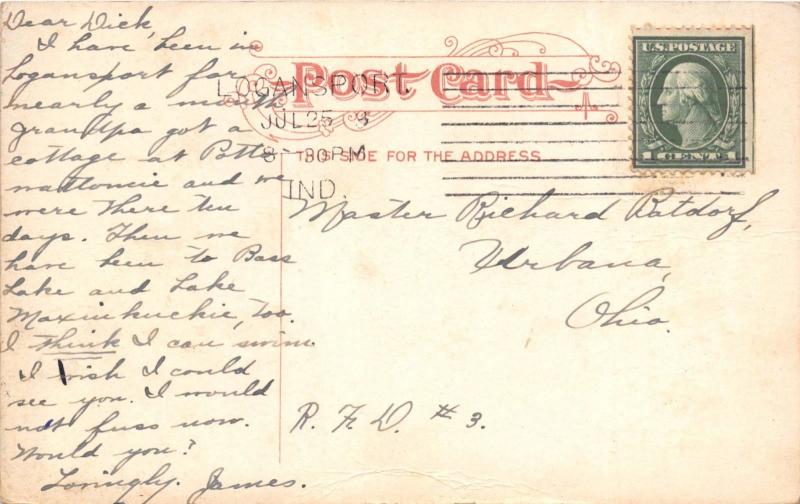 Dear Dick,
I have been in
Logansport for
nearly a month
grandpa got a
cottage at Potta-
wattomie and we
were there ten
days. Then we
have been to Bass
Lake and Lake
Maxinkuckie, too.
I think I can swim.
I wish I could
see you. I would
not fuss now.
Would you?
Lovingly, James.
Post Card
THIS SIDE FOR THE ADDRESS
LOGANSPORT,
JUL 25
8-30 PM
IND.
U.S. POSTAGE
1 CENT 1
Master Richard Ratdorf,
Urbana,
Ohio.
R. F. D. #3.